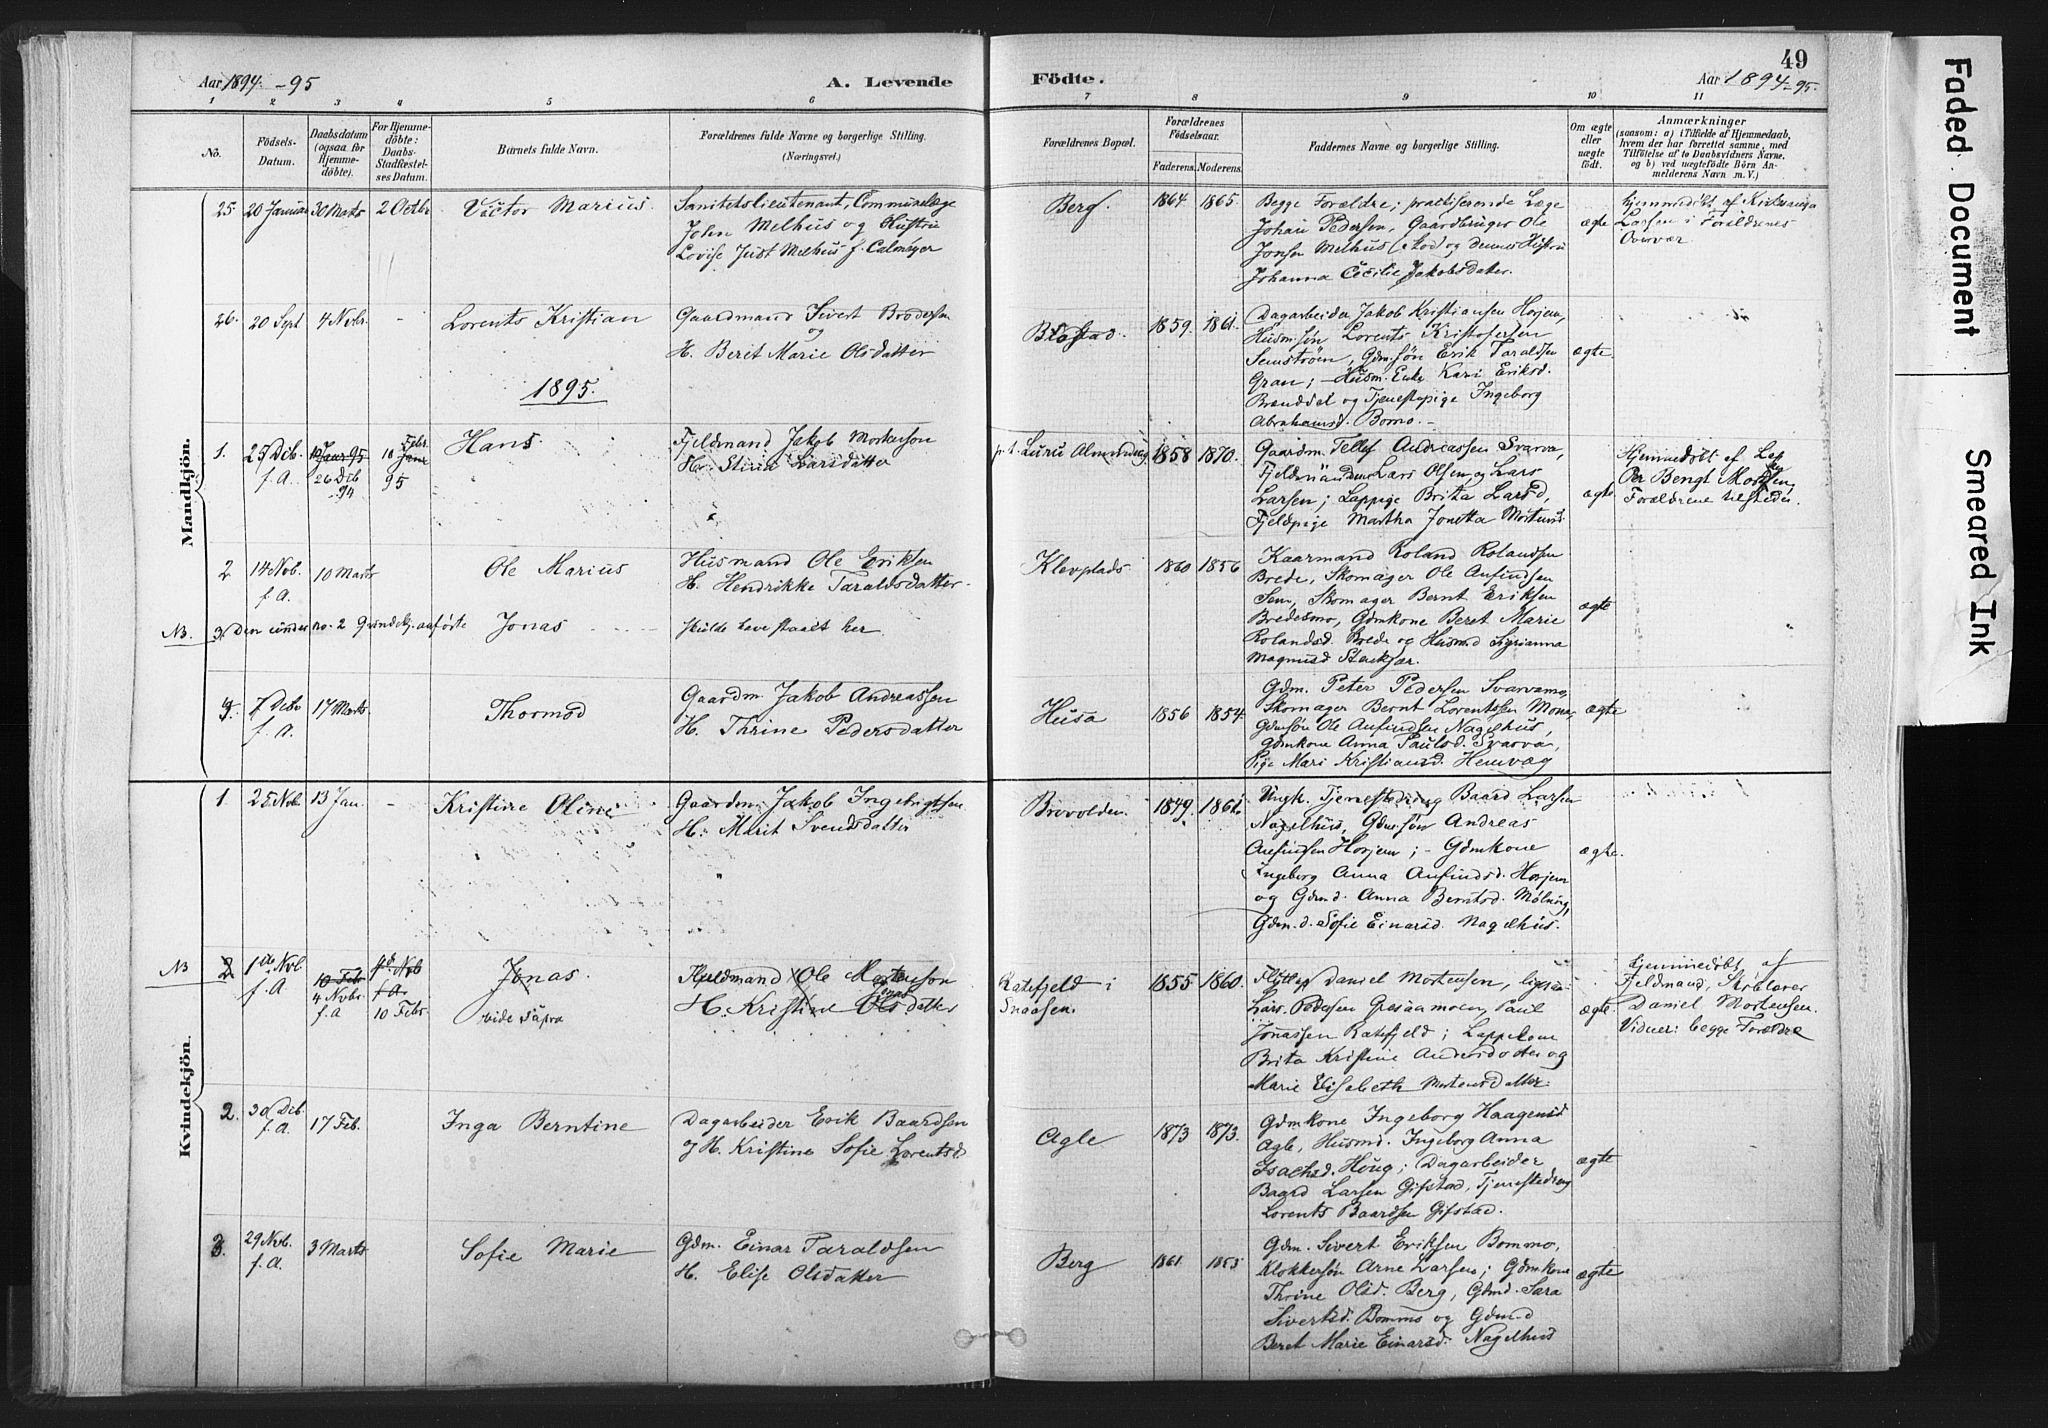 49
Aar 1894-95
A. Levende
Födte.
Aar 1894-95.
1 2 3 4 5 6 7 8 9 10 11
No.
Födsels-
Datum.
Daabsdatum
(ogsaa for
Hjemme-
döbte).
For Hjemme-
döbte:
Daabs-
Stadfæstel-
ses Datum.
Barnets fulde Navn.
Forældrenes fulde Navne og borgerlige Stilling.
(Næringsvei.)
Forældrenes Bopæl.
Forældrenes
Födselsaar.
Faderens. Moderens.
Faddernes Navne og borgerlige Stilling.
Om ægte
eller
uægte
födt.
Anmærkninger
(saasom: a) i Tilfælde af Hjemmedaab,
hvem der har forrettet samme, med
Tilföielse af to Daabsvidners Navne.
og b) ved uægtefödte Börn An-
melderens Navn m. V.)
Mandkjön.
25. 20 Januar 30 Marts 2 Octbr
Victor Marius.
Sanitetslieutenant, Communelæge
John Melhus og Hustru
Lovise Just Melhus f. Calmeyer
Berg.
1864 1865.
Begge Forældre; practiserende Læge
Johan Pedersen, Gaardbruger Ole
Jonsen Melhus (Stod) og dennes Hustru
Johanna Cecilie Jakobsdatter.
ægte
hjemmedöbt af
Larsen i Forældrenes
Overvær
26. 20 Sept 4 Novbr. -
Lorents Kristian
Gaardmand Sivert Brodersen
og
H. Beret Marie Olsdatter
1859. 1861.
Dagarbeider Jakob Kristiansen Horjem,
Husm.søn Lorents Kristofersen
Semstrøen, Gdm.søn Erik Taraldsen
Gran; Husm. Enke Kari Eriksd.
Brænddal og Tjenestepige Ingeborg
Abrahamsd. Bomo.
ægte.
1895.
1. 25 Dcb. f. A.
10 Janr 95
26 Dcb 94
10 Febr. Janr 95
Hans.
Fjeldmand Jakob Mortenson
H. Stina Larsdatter
p.t. Luru Almending
1858 1870.
Gaardm. Tellef Andreassen Svarva,
Fjeldmændene Lars Olsen, og Lars
Larsen; Lappige Brita Larsd,
Fjeldpige Martha Jonetta Mortensd.
ægte.
Hjemmedöbt af Lap
Per Bengt Mortsen,
Forældrene tilstede.
2 14 Nvb. f. A. 10 Marts
Ole Marius
Husmand Ole Eriksen
H. Hendrikke Taraldsdatter.
Klevplads
1860 1856
Kaarmand Roland Rolandsen
Brede, Skomager Ole Anfindsen
Sem, Skomager Bernt Eriksen
Bredesmo, Gdmkone Beret Marie
Rolandsd Brede og Husmd Syrianna
Magnusd Stenkjær.
ægte
NB. 3. Den under no. 2 Qvindekj. anførte Jonas skulde have staaet her.
4. 7 Dcbr f. A. 17 Marts.
Thormod
Gaardm. Jakob Andreassen
H. Thrine Pedersdatter
Husa
1856 1854.
Gdm. Peter Pedersen Svarvamo,
Skomager Bernt Lorentssen Mona,
Gdmsøn Ole Anfindsen Nagelhus,
Gdmkone Anna Paulsd. Svarva,
Pige Mari Kristiansd. Hemvæg
ægte
Kvindekjön.
1. 25 Nvbr 13 Jan. -
Kristine Oline
Gaardm. Jakob Ingebrigtsen
H. Marit Svendsdatter
Brevolden.
1849. 1861.
Ungk. Tjenestedreng Baard Larsen
Nagelhus, Gdmsøn Andreas
Anfindsen Horjem; - Gdmkone
Ingeborg Anna Anfindsd. Horjem
og Gdmd. Anna Berntsd. Mølning,
Gdm.d. Sofie Einarsd. Nagelhus.
ægte.
NB 2. 1ste Nvb. f. A
10 Febr
4 Nvbr. f. a
4de Nvb f. A.
10 Febr
Jonas.
vide supra
Fjeldmand Ole Mortenson
H. Kristine Jonas Olsdatter
Ratefjeld i
Snaasen.
1855 1860.
Flytlap Daniel Mortensen, ligesaa
Lars Pedersen Gresaamoen, Paul
Jonassen Ratefjeld; Lappekone
Brita Kristine Andersdotter og
Marie Elisabeth Mortensdatter.
ægte.
Hjemmedöbt af
Fjeldmand, Skolelærer
Daniel Mortensen.
Vidner: begge Forældre
2. 30 Dcb. f. A. 17 Feb.
Inga Berntine
Dagarbeider Erik Baardsen
og H. Kristine Sofie Lorentsd.
Agle
1873 1873.
Gdmkone Ingeborg Haagensd
Agle, Husmd. Ingeborg Anna
Isachsd. Houg; Dagarbeider
Baard Larsen Gifstad, Tjenestedreng
Lorents Baardsen Gifstad.
ægte
3. 29 Nvb. f. A. 3 Marts
Sofie Marie
Gdm. Einar Taraldsen
H. Elise Olsdatter
Berg
1861 1855
Gdm. Sivert Eriksen Bommo,
Klokkersøn Arne Larsen; Gdmkone
Thrine Olsd. Berg, Gdmd. Sara
Sivertsd. Bommo og Gdmd
Beret Marie Einarsd. Nagelhus
ægte
Faded Document
Smeared Ink